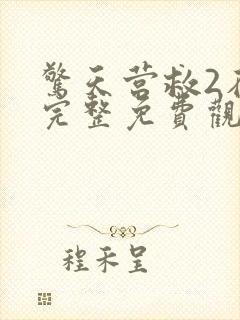 驚天营救2在
完整免費觀
程禾呈